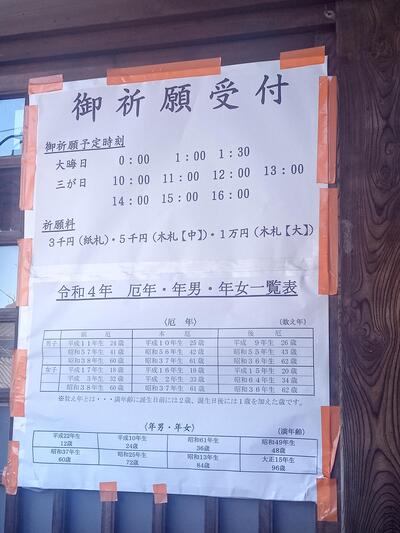 御祈願受付
御祈願予定時刻
大晦日 0:00 1:00 1:30
三が日 10:00 11:00 12:00 13:00
14:00 15:00 16:00
祈願料
3千円(紙札)・5千円(木札【中】)・1万円(木札【大】)
令和4年 厄年・年男・年女一覧表
〈厄 年〉 (数え年)
前 厄 本 厄 後 厄
男子 平成11年生 24歳 平成10年生 25歳 平成 9年生 26歳
昭和57年生 41歳 昭和56年生 42歳 昭和55年生 43歳
昭和38年生 60歳 昭和37年生 61歳 昭和36年生 62歳
女子 平成17年生 18歳 平成16年生 19歳 平成15年生 20歳
平成 3年生 32歳 平成 2年生 33歳 昭和64年生 34歳
昭和38年生 60歳 昭和37年生 61歳 昭和36年生 62歳
※数え年とは・・・満年齢に誕生日前には2歳、誕生日後には1歳を加えた歳です。
〈年男・年女〉 (満年齢)
平成22年生 平成10年生 昭和61年生 昭和49年生
12歳 24歳 36歳 48歳
昭和37年生 昭和25年生 昭和13年生 大正15年生
60歳 72歳 84歳 96歳